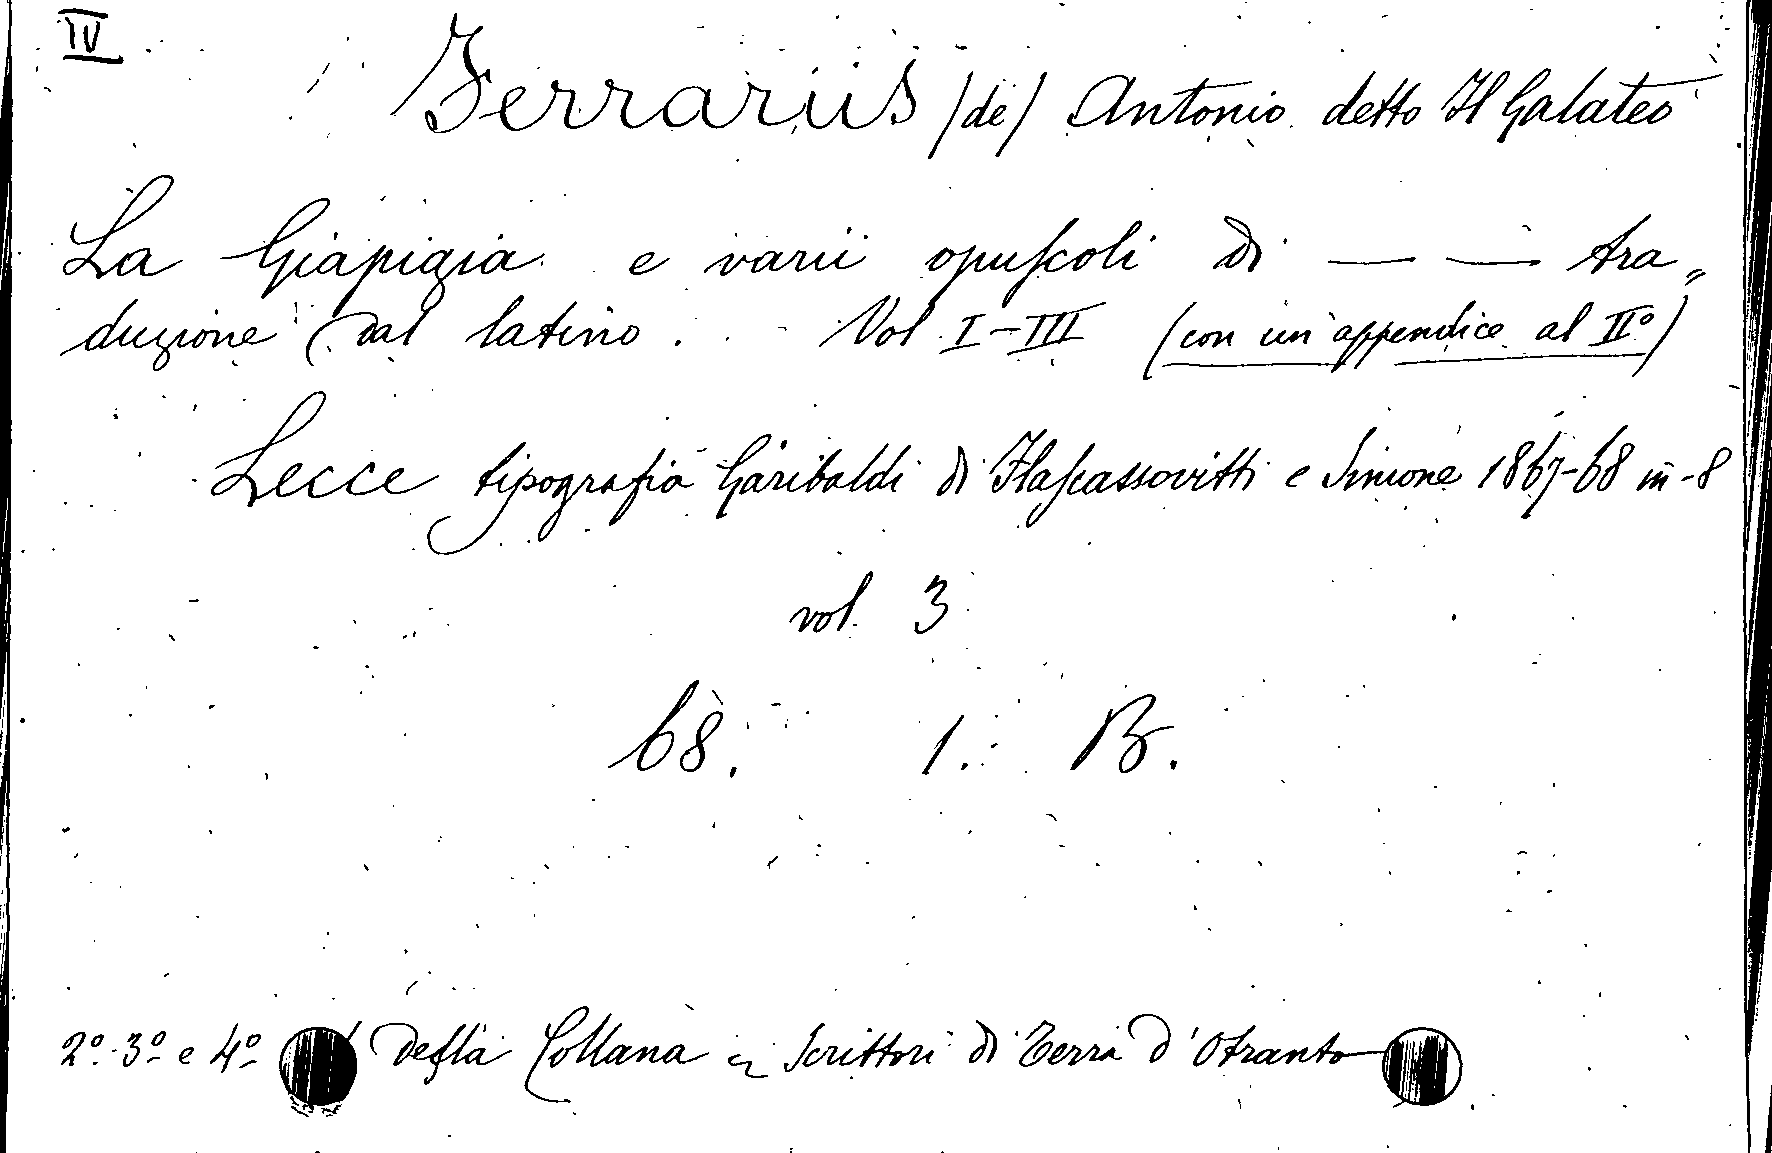 IV
Ferrariis (de) Antonio detto Il Galateo
La Giapigia e varii opuscoli di — — tra„
duzione dal latino. Vol I–III (con un'appendice al II°)
Lecce tipografia Garibaldi di Flascassovitti e Simone 1867-68 in-8
vol. 3
68. 1. B.
2° 3° e 4° della Collana Scrittori di Terra d'Otranto